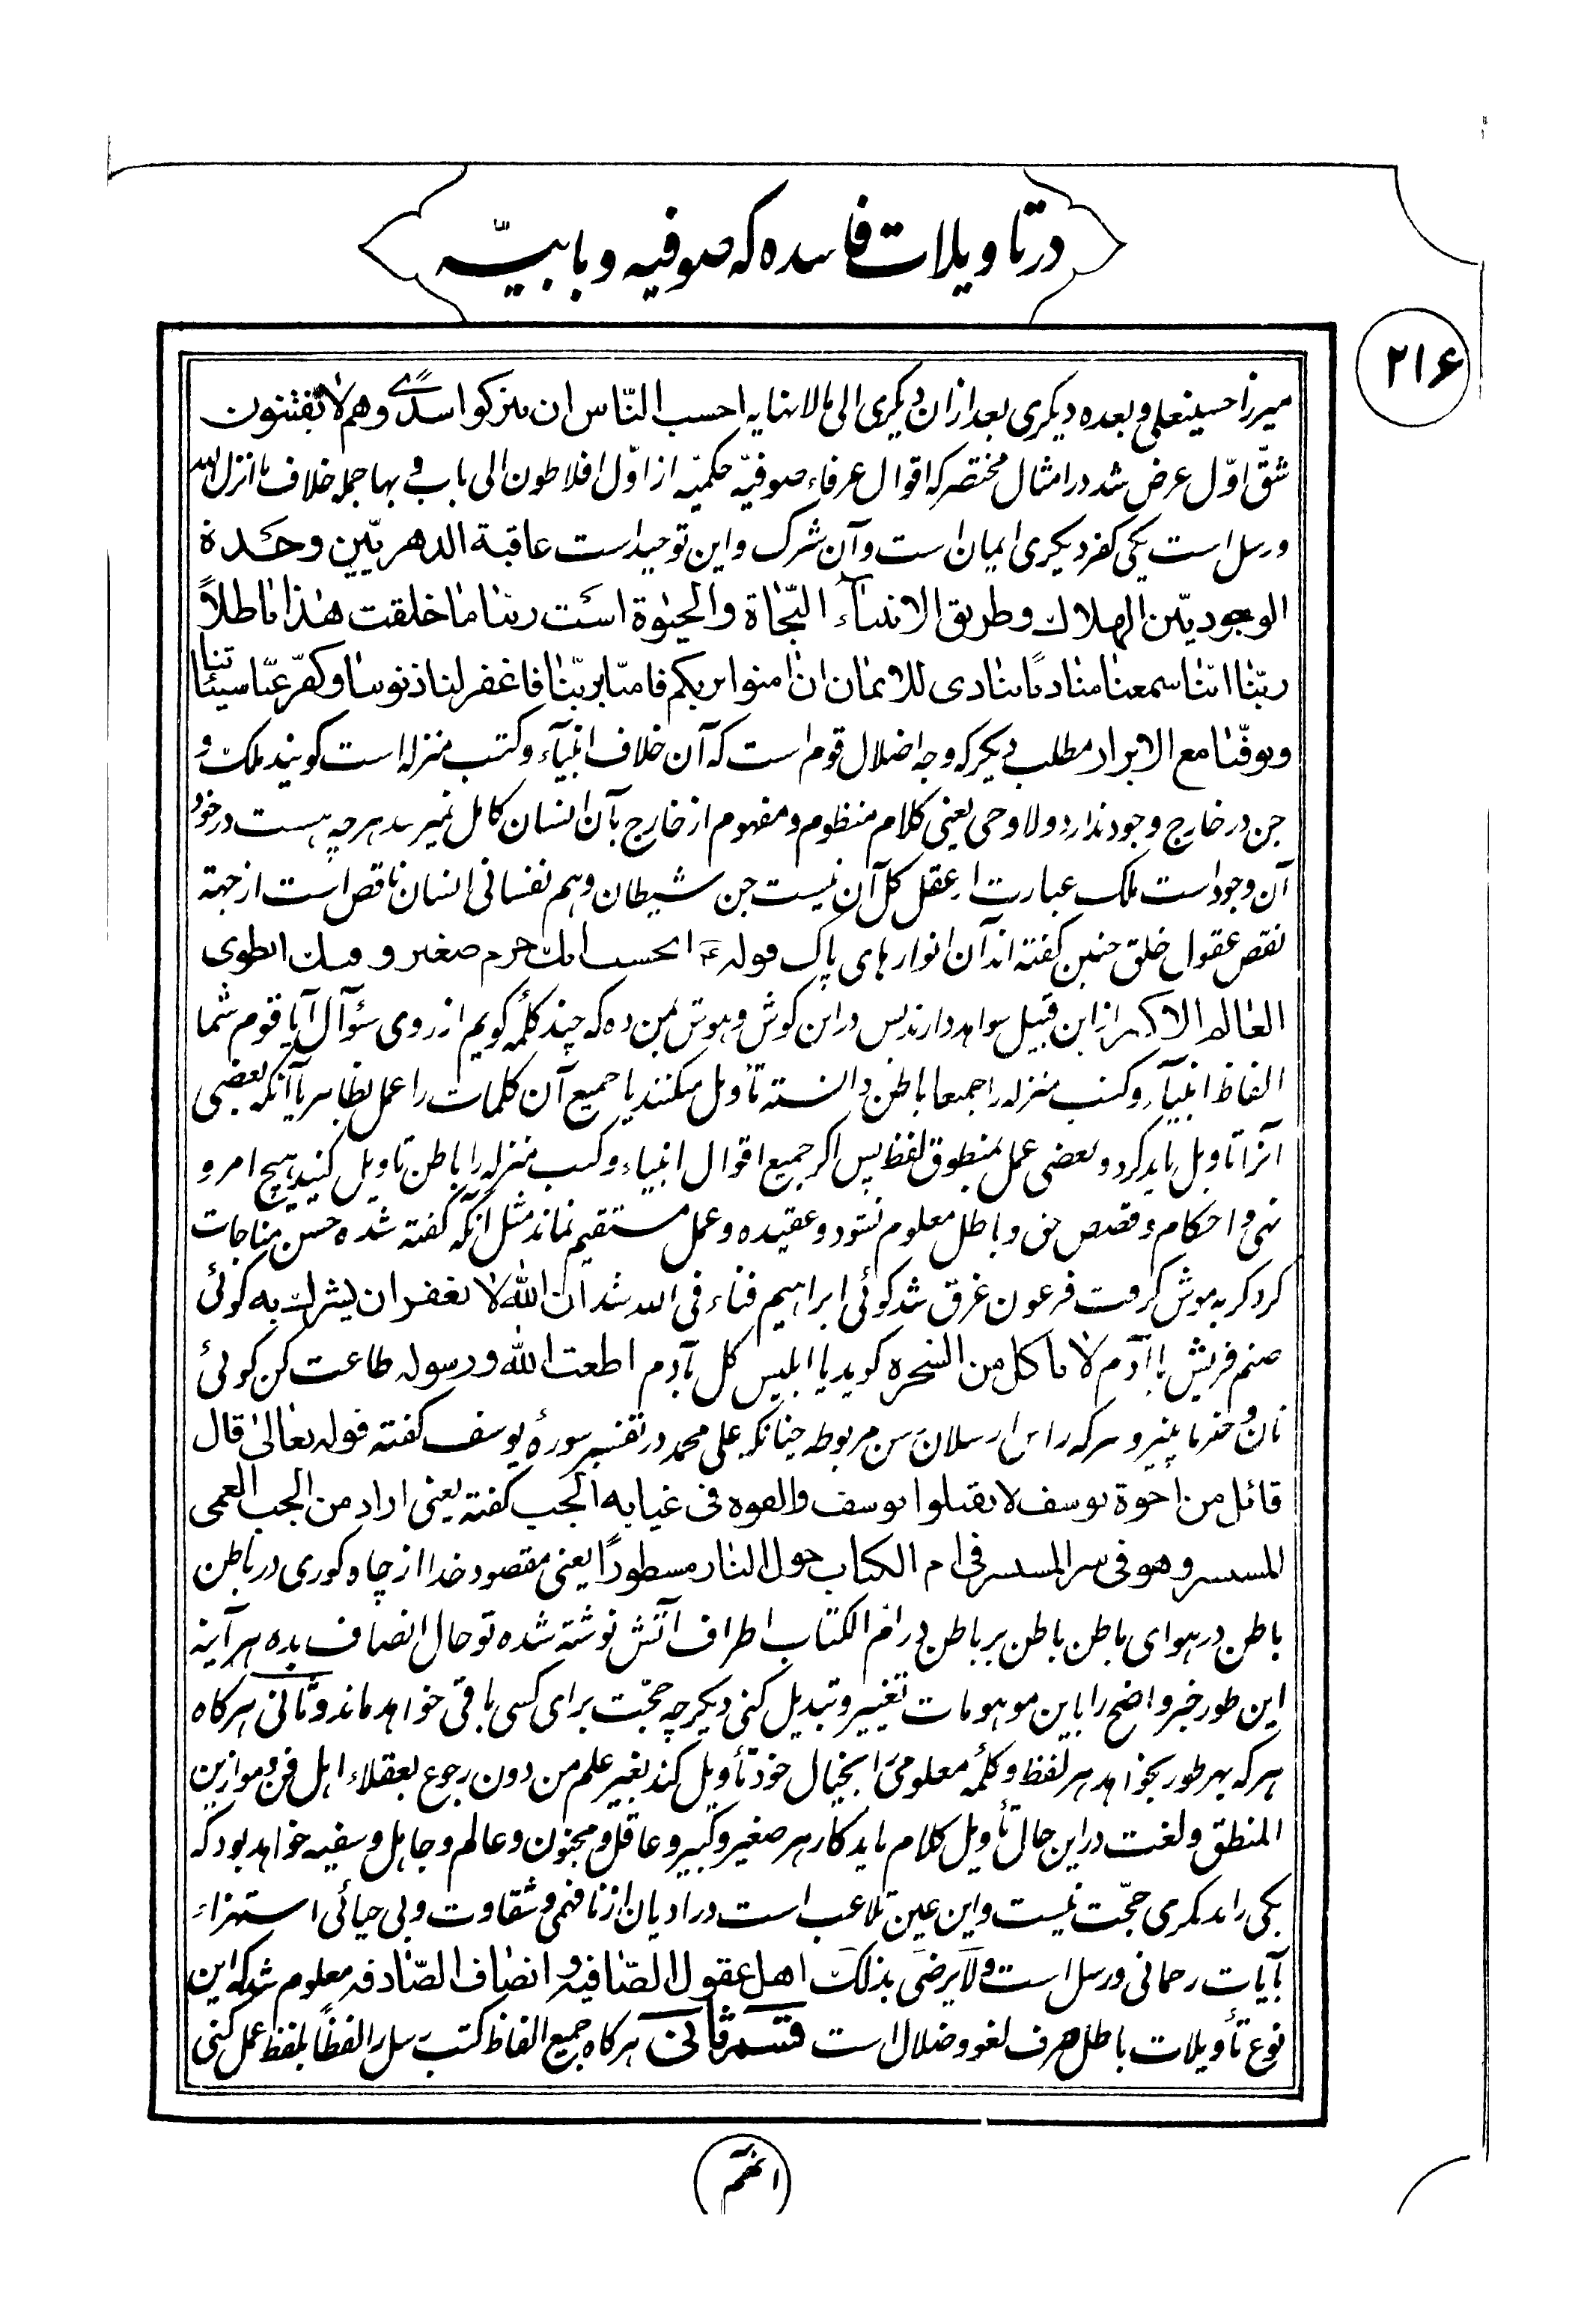 در تاویلات فاسده که صوفیه و بابیّه
۲۱۶
میرزا حسینعلی و بعده دیگری بعد از ان دیگری الی مالانهایه احسب النّاس ان یترکوا سدًی وهم لا یفتنون
شقّ اوّل عرض شد در امثال مختصر که اقوال عرفاء صوفیّه حکمیّه از اوّل افلاطون الی باب و بها جمله خلاف ما انزل الله
و رسل است یکی کفر دیگری ایمان است و آن شرک و این توحید است عاقبة الدهریّین وحدة
الوجودیّین الهلاك وطریق الانبیآء النّجاة والحیٰوة است ربنا ما خلقت هذا باطلاً
ربّنا انّنا سمعنا منادیًا ینادی للایمان ان امنوا بربکم فامنّا بربّنا فاغفر لنا ذنوبنا وکفّر عنّا سیئاتنا
وتوفّنا مع الابرار مطلب دیگر که وجه اضلال قوم است که آن خلاف انبیآء و کتب منزله است گویند ملک و
جن در خارج وجود ندارد و لا وحی یعنی کلام منظوم و مفهوم از خارج بآن انسان کامل نمیرسد هرچه هست در خود
آن وجود است ملک عبارت از عقل کل آن نیست جن شیطان وهم نفسانی انسان ناقص است از جهة
نقص عقول خلق چنین گفته اند آن انوارهای پاک قوله ع اتحسب انك جرم صغیر و فیك انطوی
العالم الاکبر از این قبیل شواهد دارند پس در این گوش و هوش بمن ده که چند کلمه گویم از روی سؤآل آیا قوم شما
الفاظ انبیآء و کتب منزله را جمیعا باطن دانسته تأویل میکنند یا جمیع آن کلمات را عمل بظاهر یا آنکه بعضی
آنرا تاویل باید کرد و بعضی عمل بمنطوق لفظ پس اگر جمیع اقوال انبیاء و کتب منزله را باطن تاویل کنید هیچ امر و
نهی و احکام و قصص حق و باطل معلوم نشود و عقیده و عمل مستقیم نماند مثل آنکه گفته شده حسن مناجات
کرد گربه موش گرفت فرعون غرق شد گوئی ابراهیم فناء فی الله شد ان الله لا یغفر ان یشرك به گوئی
صنم قریش یا آدم لا تأکل من الشجره گوید یا ابلیس کل یا آدم اطعت الله ورسوله طاعت کن گوئی
نان و پنیر و سرکه را چنانکه علی محمد در تفسیر سورۀ یوسف گفته قوله تعالی قال
قائل من اخوة یوسف لا تقتلوا یوسف والقوه فی غیابه الجب گفته یعنی اراد من الجب العمی
المستسر وهو فی سر المستسر فی ام الکتاب حول النار مسطورًا یعنی مقصود خدا از چاه کوری در باطن
باطن در هوای باطن باطن بر باطن در ام الکتاب اطراف آتش نوشته شده تو حال انصاف بده هرآینه
این طور خبر واضح را باین موهومات تغییر و تبدیل کنی دیگر چه حجّت برای کسی باقی خواهد ماند و ثانی هرکاه
هرکه بهر طور بخواهد هر لفظ و کلمۀ معلومی را بخیال خود تأویل کند بغیر علم من دون رجوع بعقلاء اهل فن و موازین
المنطق و لغت در این حال تأویل کلام باید کار هر صغیر و کبیر و عاقل و مجنون و عالم و جاهل و سفیه خواهد بود که
یکی را بدیگری حجّت نیست و این عین تلاعب است در ادیان از نافهمی و شقاوت و بی حیائی استهزاء
بآیات رحمانی و رسل است و لا یرضی بذلك اهل عقول الصّافیه و انصاف الصّادقه معلوم شد که این
نوع تأویلات باطل صرف لغو و ضلال است قسم ثانی هرکاه جمیع الفاظ کتب رسل را لفظًا بلفظ عمل کنی